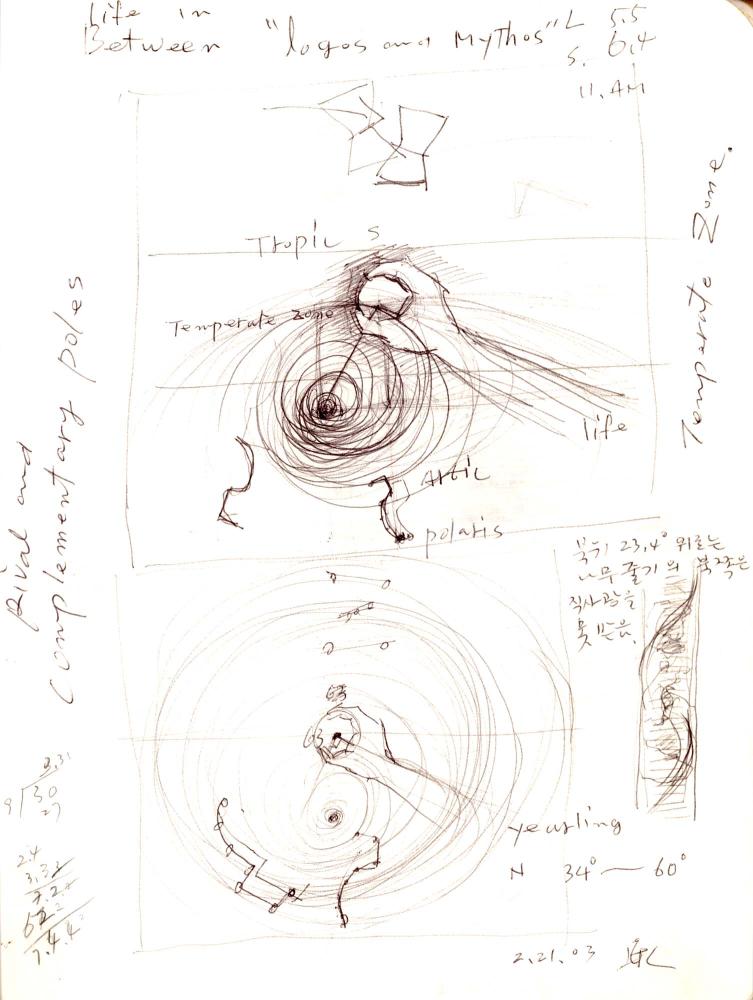 Life in
Between "logos and Mythos" L 5.5
S. 6.4
11. AM
Tropic s
Temperate Zone
Temperate Zone.
Rival and
Complementary poles
life
Artic
polaris
북위 23.4° 위로는
나무 줄기의 북쪽은
직사광을
못 받음.
yearling
N 34° ~ 60°
2.31
9 30
27
2.21.03